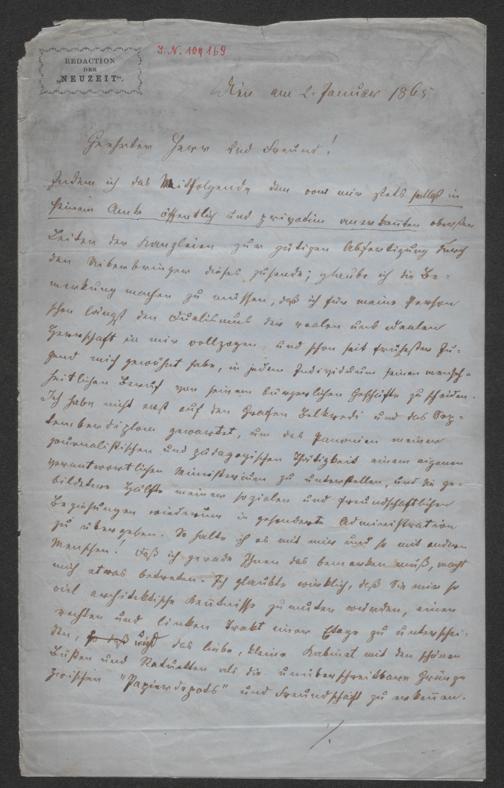 REDACTION
DER
„NEUZEIT“.
I.N. 109169
Wien am 2. Januar 1865
Geehrter Herr und Freund!
Indem ich das Mitfolgende dem von mir stets selbst in
seinem Amte öffentlich und privatim anerkannten obersten
Leiter der Kanzleien zur gütigen Abfertigung durch
den Überbringer dieses zusende, glaube ich die Be-
merkung machen zu müssen, daß ich für meine Person
schon längst den Dualismus der realen und idealen
Herrschaft in mir vollzogen und schon seit frühester Ju-
gend mich gewöhnt habe, in jedem Individuum seinen mensch-
heitlichen Beruf von seinem bürgerlichen Geschäfte zu scheiden.
Ich habe nicht erst auf den Grafen Belkredi und das Sep-
temberdiplom gewartet, um das Panonien meiner
journalistischen und pädagogischen Thätigkeit einem eigenen
verantwortlichen Ministerium zu unterstellen, und die ge-
bildetere Hälfte meiner sozialen und freundschaftlichen
Beziehungen wiederum in gesonderte Administration
zu übergeben. So halte ich es mit mir und so mit andern
Menschen. Daß ich gerade Ihnen das bemerken muß, macht
mich etwas betreten. Ich glaubte wirklich, daß Sie mir so
viel architektische Kenntnisse zumuten würden, einen
rechten und linken Trakt einer Etage zu unterschei-
den, das liebe, kleine Kabinet mit den schönen
Büsten und als die unüberschreitbare Grenze
zwischen "Papierdepots" und Freundschaft zu erkennen.
./.